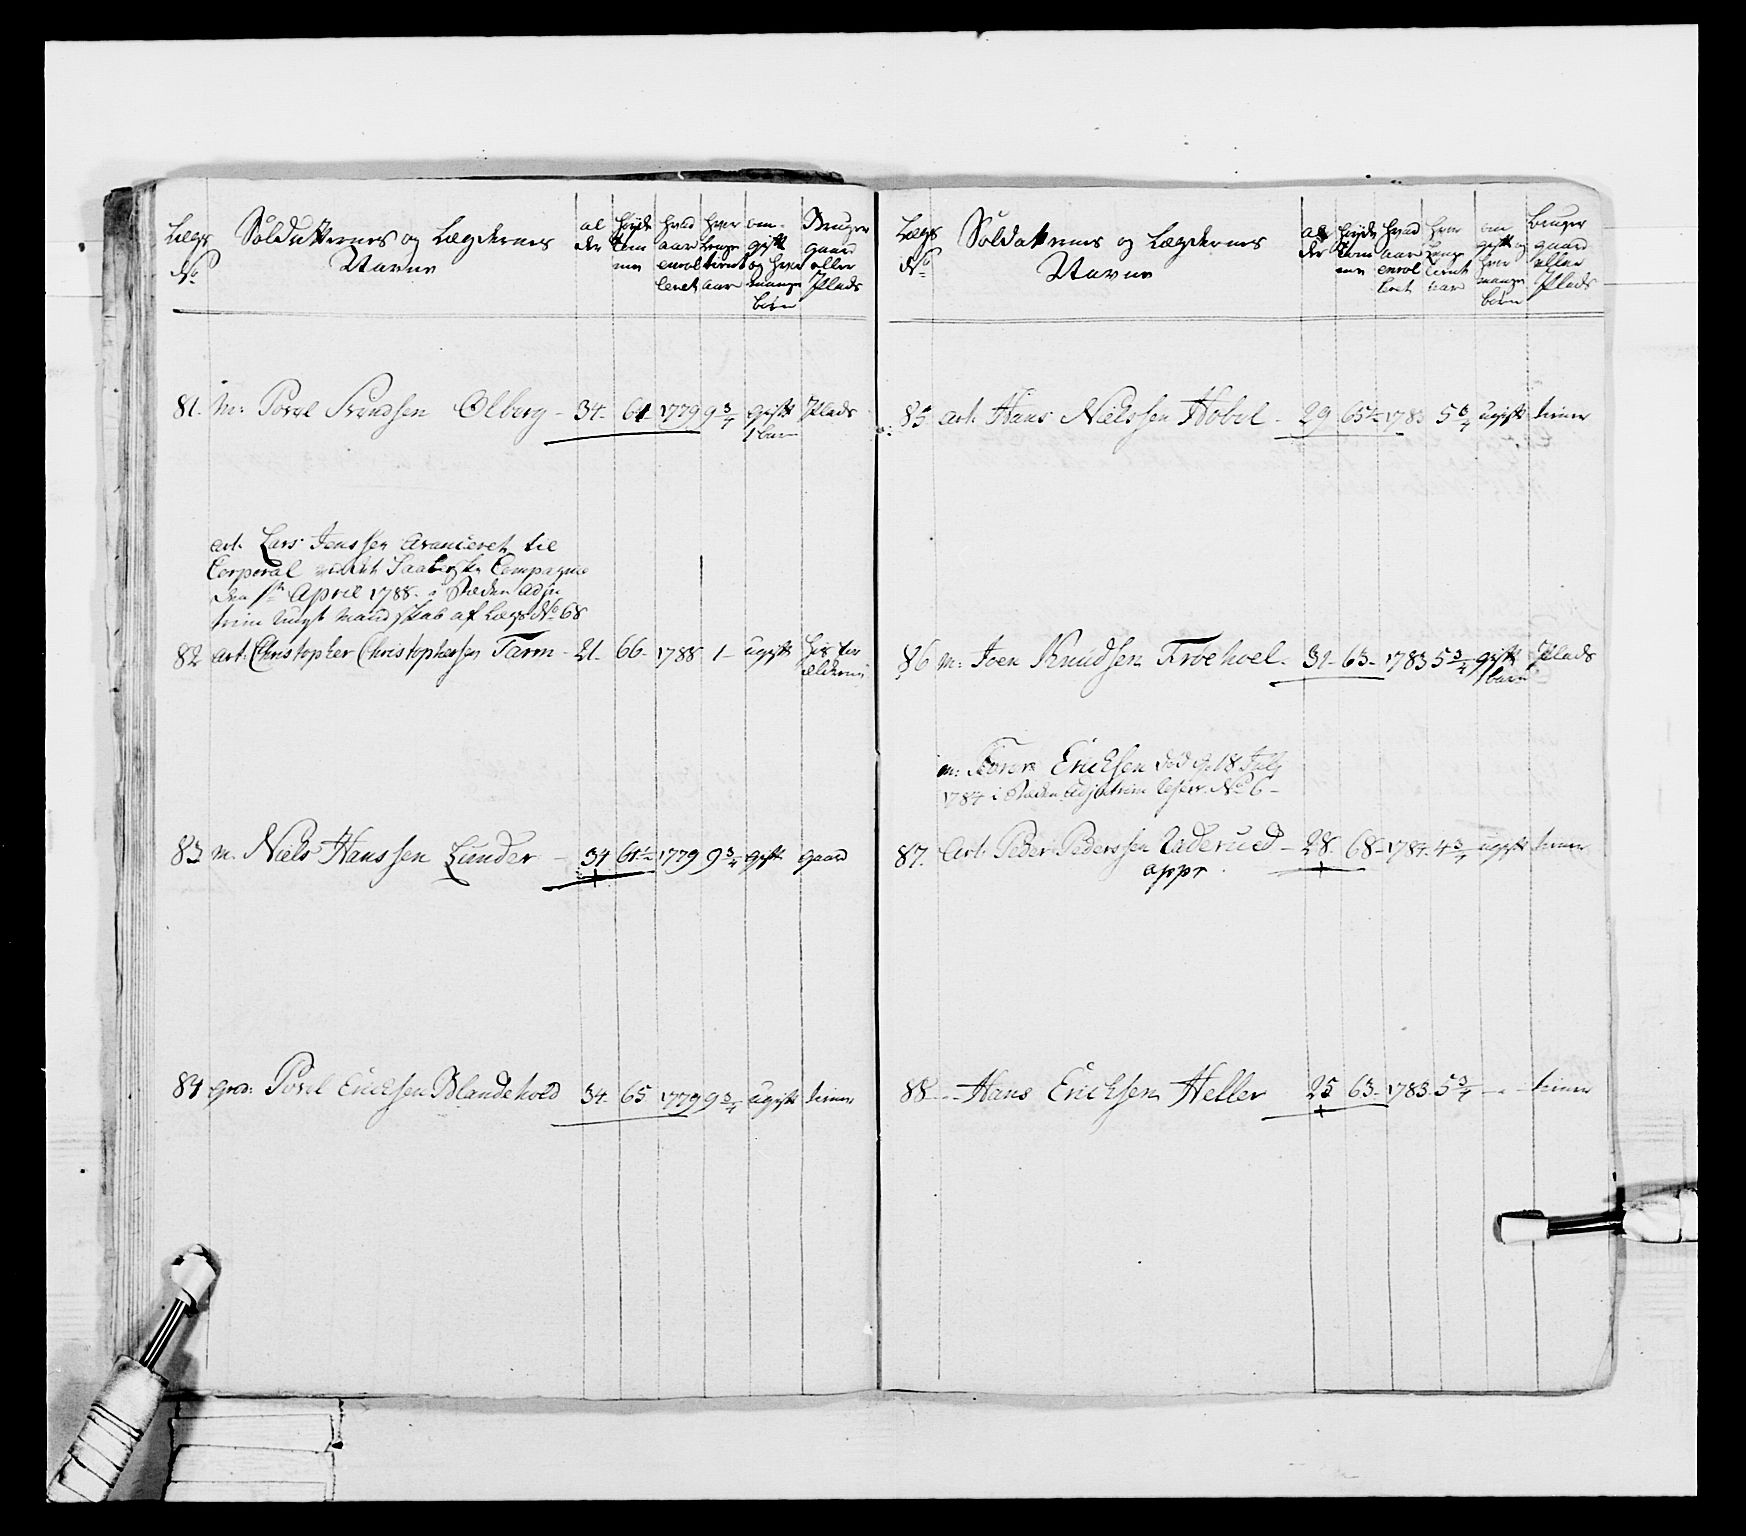 Lægs No
Soldatternes og Lægdernes Navne
al der
høyde tom mer
hvad aar enrol leret
hvor længe tient aar
om gift og hvor mange børn
Bruger gaard eller Plads
81. m: Povel Svendsen Olberg - 34- 61 1779 9 3/4 gift 1 barn Plads
art. Lars Jenssen avanceret til
Corporal Compagnie
den April 1788. i Steden
mandskab af Lægs No 68
82 art. Christopher Christophersen Tarm - 21. 66- 1788 1- ugift
83 m. Niels Hanssen Lunder - 34 1779 9 3/4 gift gaard
84 gre: Povel Erichsen Blandehoed 34- 65 1779 9 3/4 ugift tiener
Lægs No
Soldatternes og Lægdernes Navne
al der
høyde tom mer
hvad aar enrol leret
hvor længe tient aar
om gift og hvor mange børn
bruger gaard eller Plads
85 art. Hans Nielssen Hobel - 29 65 1/2 1783 5 3/4 ugift tiener
86 m: Joen Knudsen Froehoel - 31- 63- 1783 5 3/4 gift 1 barn Plads
m: Erichsen død 18 July
1784 i Steden No 6-
87. Art. Peder Pederssen - 28- 68- 1784. 4 3/4 ugift tiener
appr
88 - - Hans Erichsen Heller 25 63- 1783. 5 3/4 - " - tiener